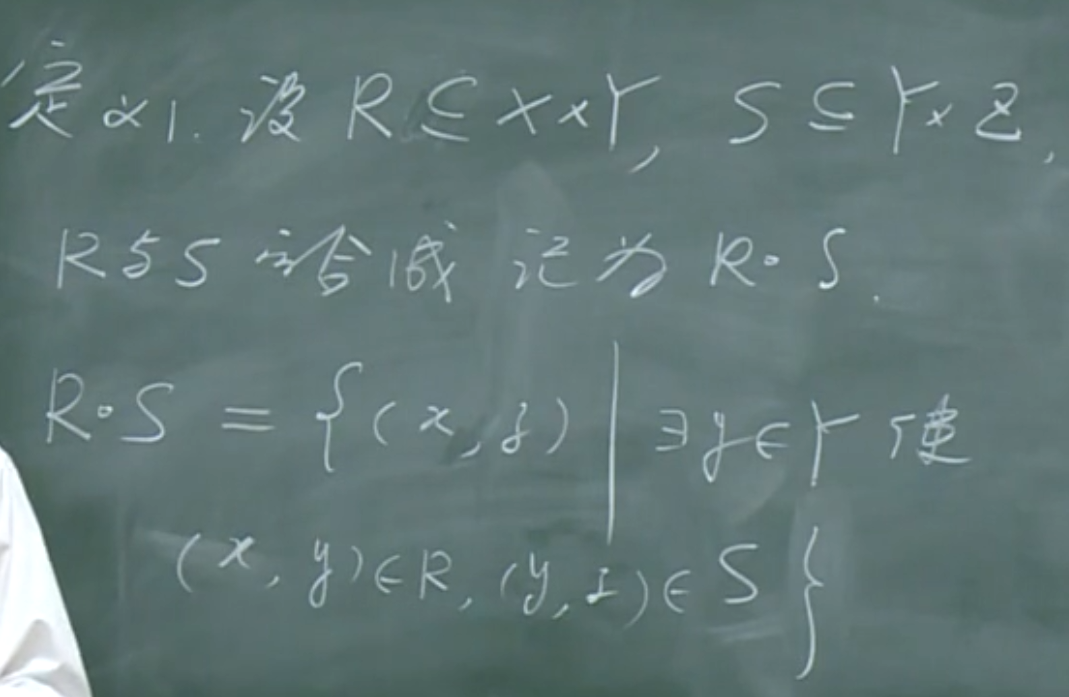 定义1. 设 R ⊆ X×Y, S ⊆ Y×Z,
R与S的合成 记为 R∘S.
R∘S = {(x,z) | ∃y∈Y 使
(x,y)∈R, (y,z)∈S}